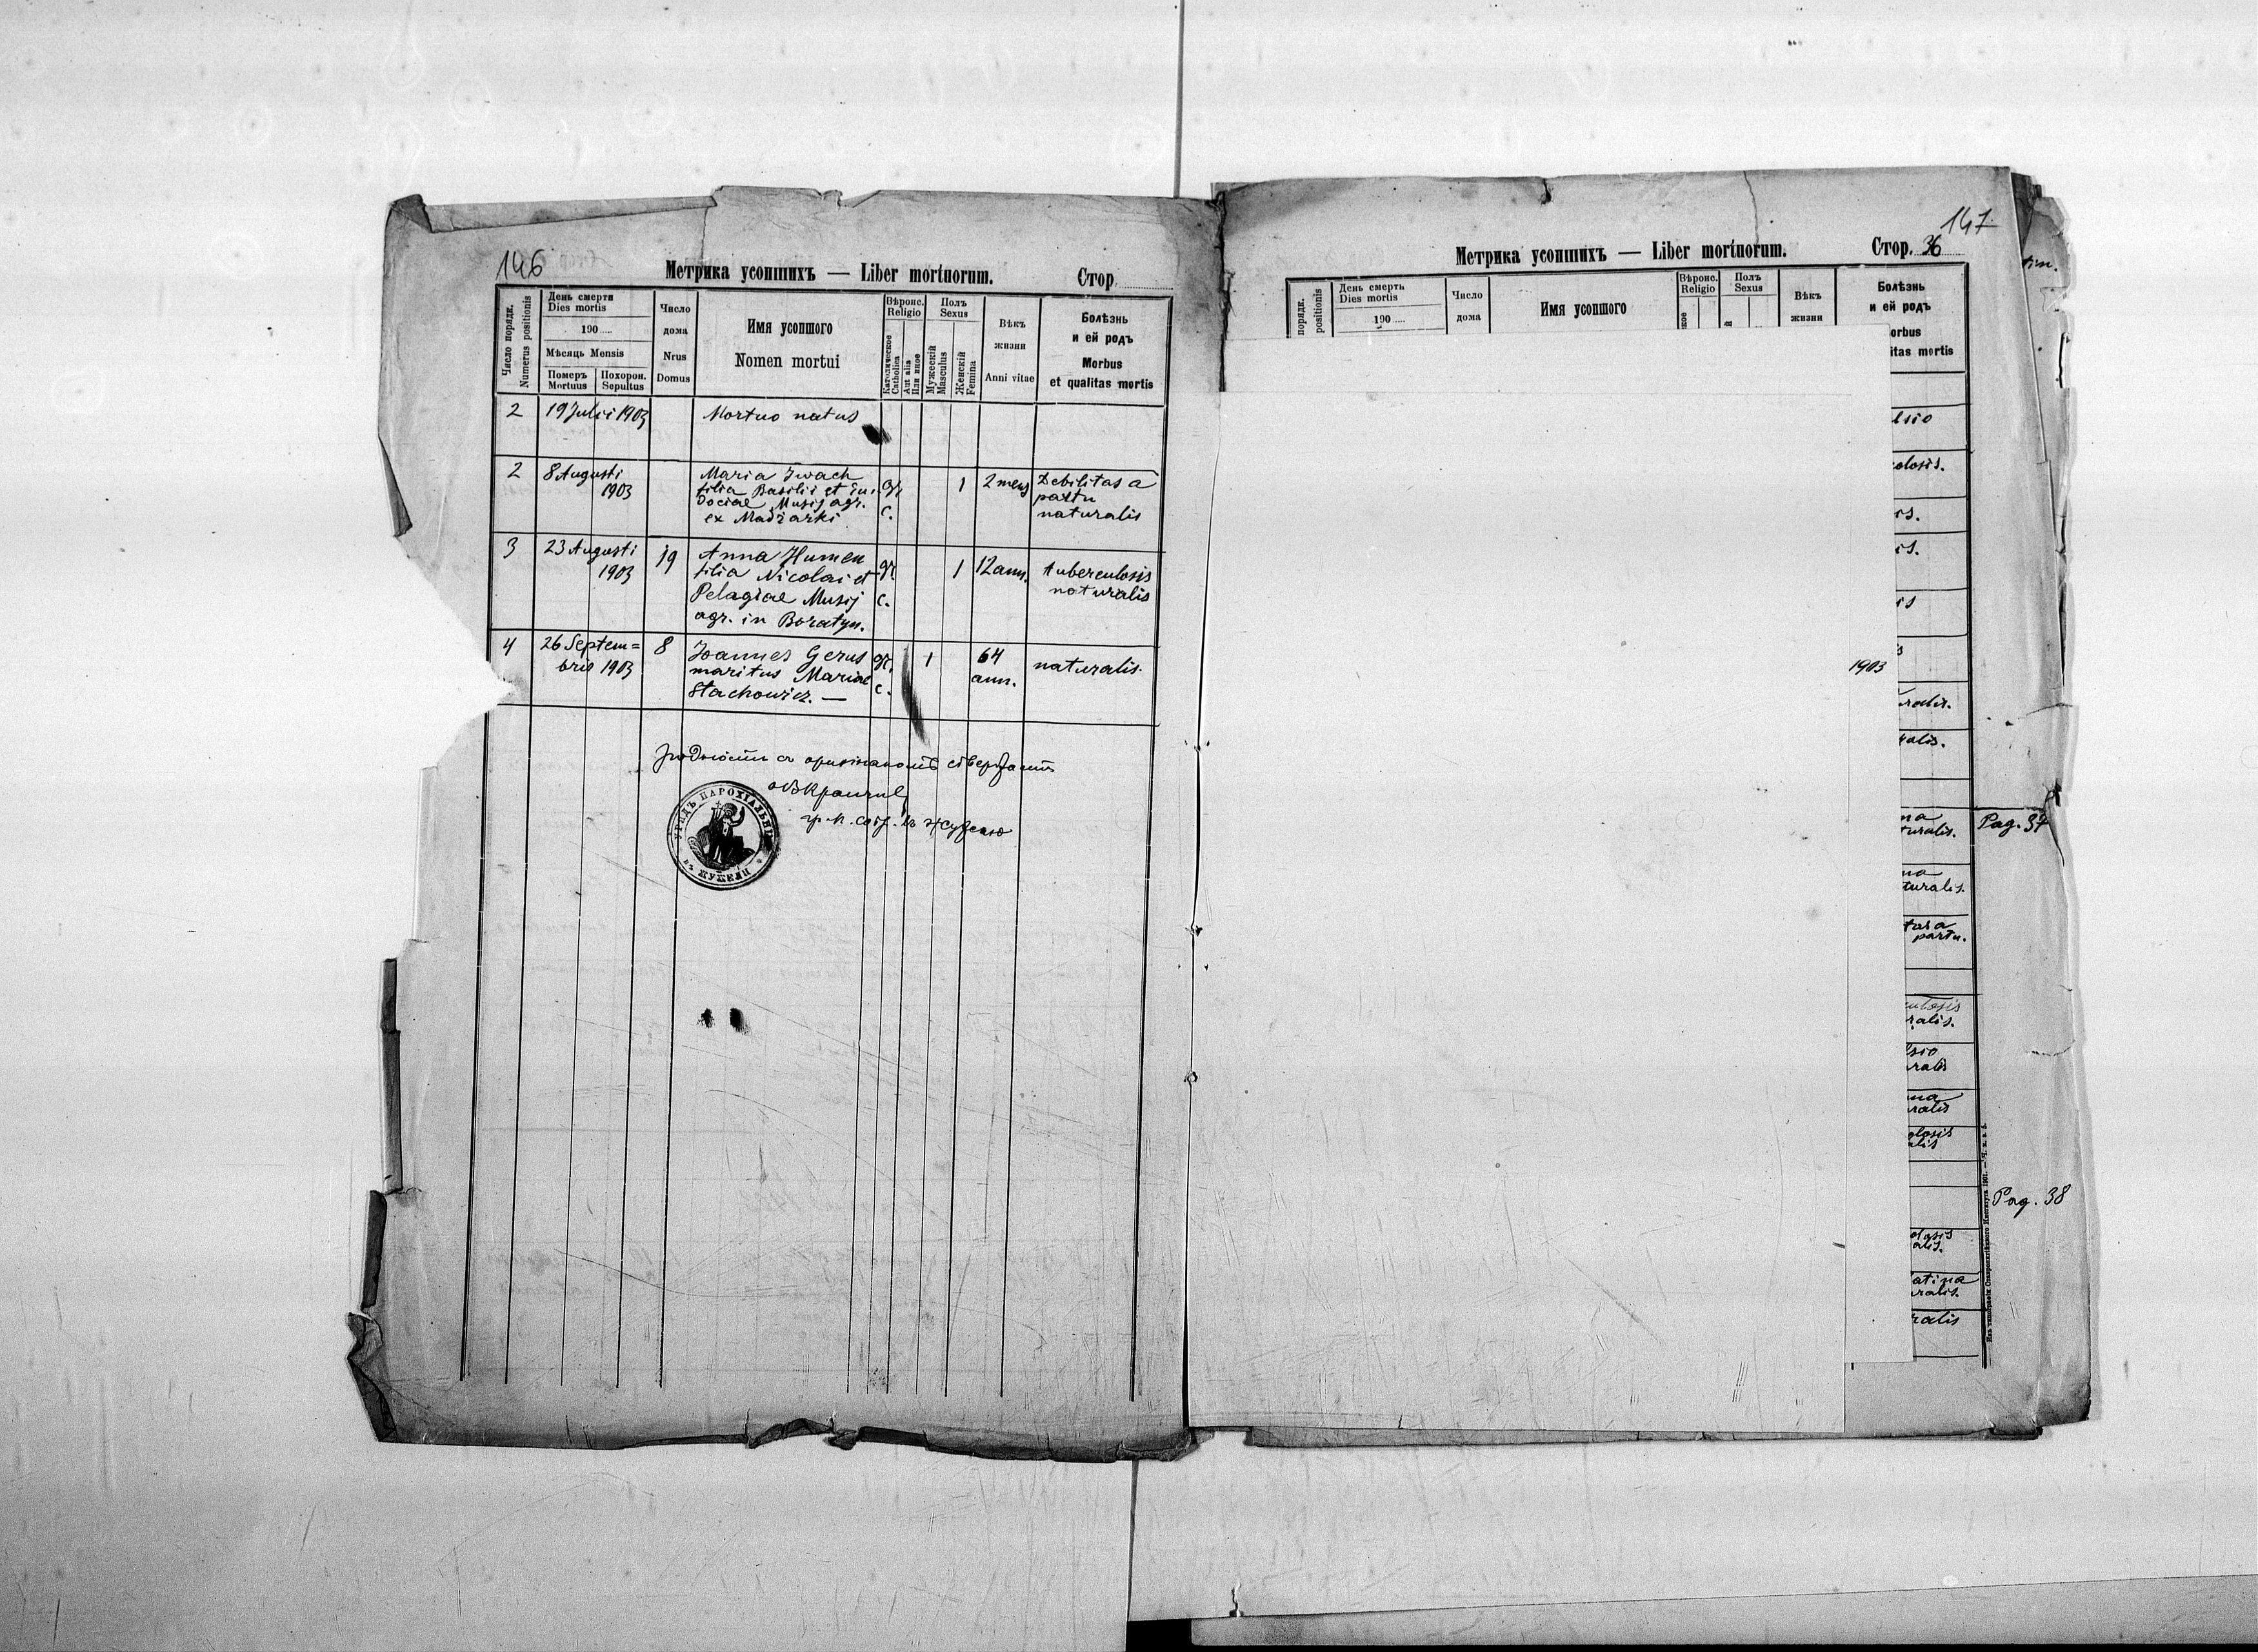 146
Метрика усопшихъ — Liber mortuorum.
Стор.
Число порядк.
Numerus positionis
День смерти
Dies mortis
190
Мѣсяць Mensis
Померъ
Mortuus
Похорон.
Sepultus
Число
дома
Nrus
Domus
Имя усопшого
Nomen mortui
Вѣроис.
Religio
Католическое
Catholica
Aut alia
Или иное
Полъ
Sexus
Мужескій
Masculus
Женскій
Femina
Вѣкъ
жизни
Anni vitae
Болѣзнь
и ей родъ
Morbus
et qualitas mortis
2 19 Julii 1903 Mortuo natus
2 8 Augusti
1903
Maria Iwach
filia Basilii et
Musij agr.
ex Madžarki
gr.
c.
1
2 mens
Debilitas a
partu
naturalis
3 23 Augusti
1903
19
Anna Humen
filia Nicolai et
Pelagiae Musij
agr. in Boratyn.
gr.
c.
1
12 ann.
tuberculosis
naturalis
4 26 Septem=
bris 1903
8
Joannes Gerus
maritus Mariae
Stachowicz. —
gr.
c.
1
64
ann.
naturalis.
УРЯДЪ ПАРОХІАЛЬНЫЙ
въ ЖУЖЕЛИ
147
Метрика усопшихъ — Liber mortuorum.
Стор. 36
порядк.
positionis
День смерть
Dies mortis
190
Число
дома
Имя усопшого
Вѣроис.
Religio
Полъ
Sexus
Вѣкъ
жизни
Болѣзнь
и ей родъ
orbus
itas mortis
lsio
olosis.
is.
is.
is
1903
ralis.
ralis.
ma
turalis.
Pag. 37
ma
turalis.
partu.
ralis.
lsio
ralis
ma
ralis
olosis
alis
Pag. 38
olosis
alis.
latina
ralis.
ralis